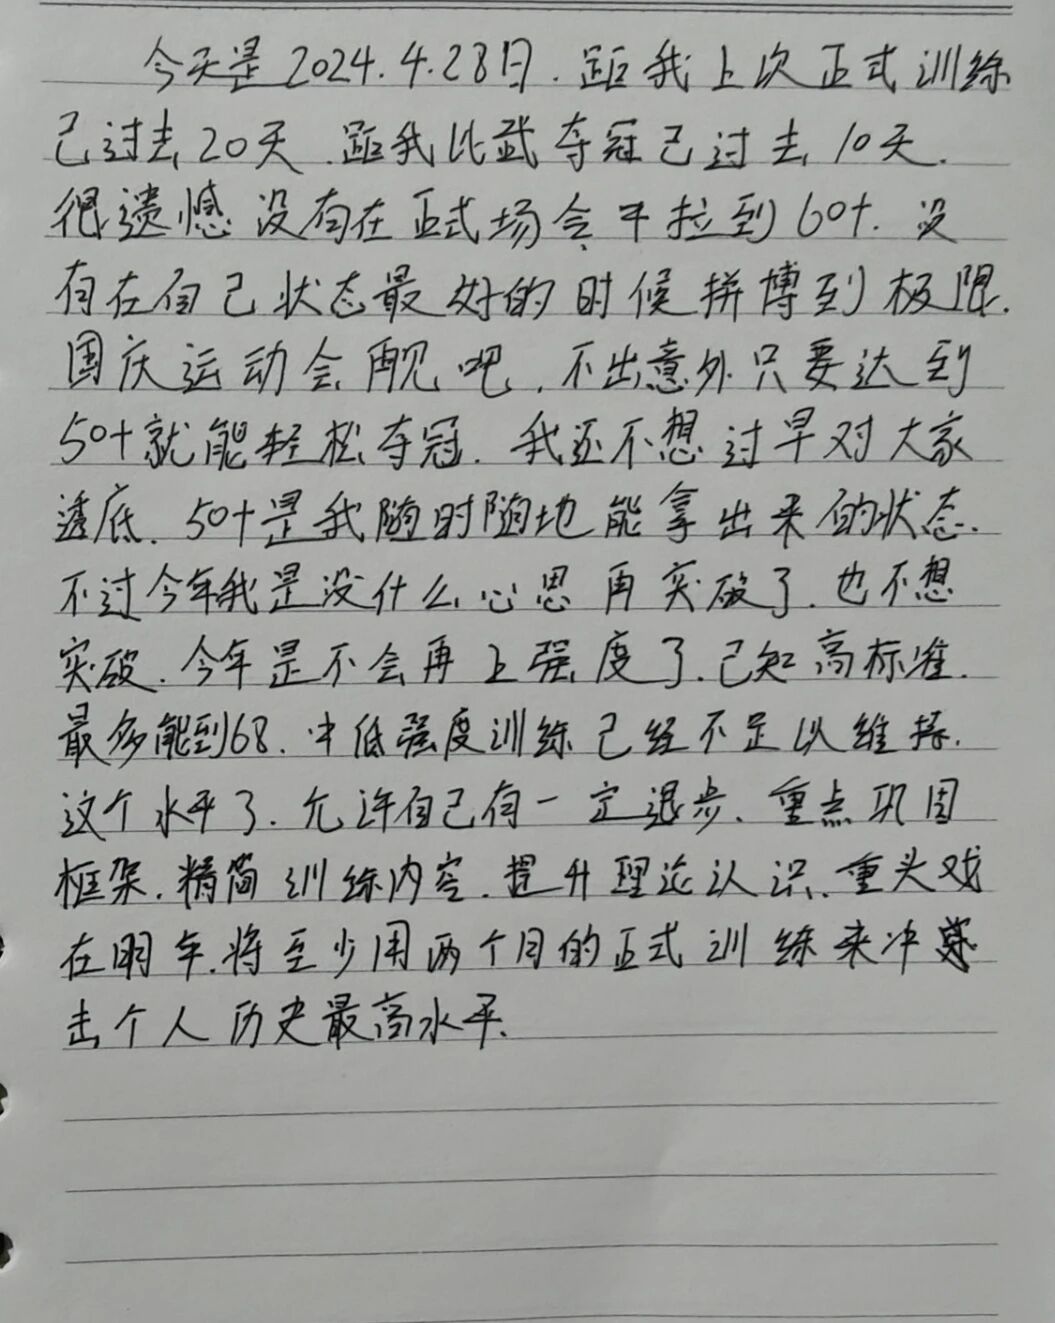 今天是2024.4.28日.距我上次正式训练
已过去20天.距我比武夺冠已过去10天.
很遗憾没有在正式场合中拉到60+.没
有在自己状态最好的时候拼搏到极限.
国庆运动会再见吧.不出意外只要达到
50+就能轻松夺冠.我还不想过早对大家
透底.50+是我随时随地能拿出来的状态.
不过今年我是没什么心思再突破了.也不想
突破.今年是不会再上强度了.已知高标准.
最多能到68.中低强度训练已经不足以维持.
这个水平了.允许自己有一定退步、重点巩固
框架.精简训练内容.提升理论认识.重头戏
在明年.将至少用两个月的正式训练来冲
击个人历史最高水平.